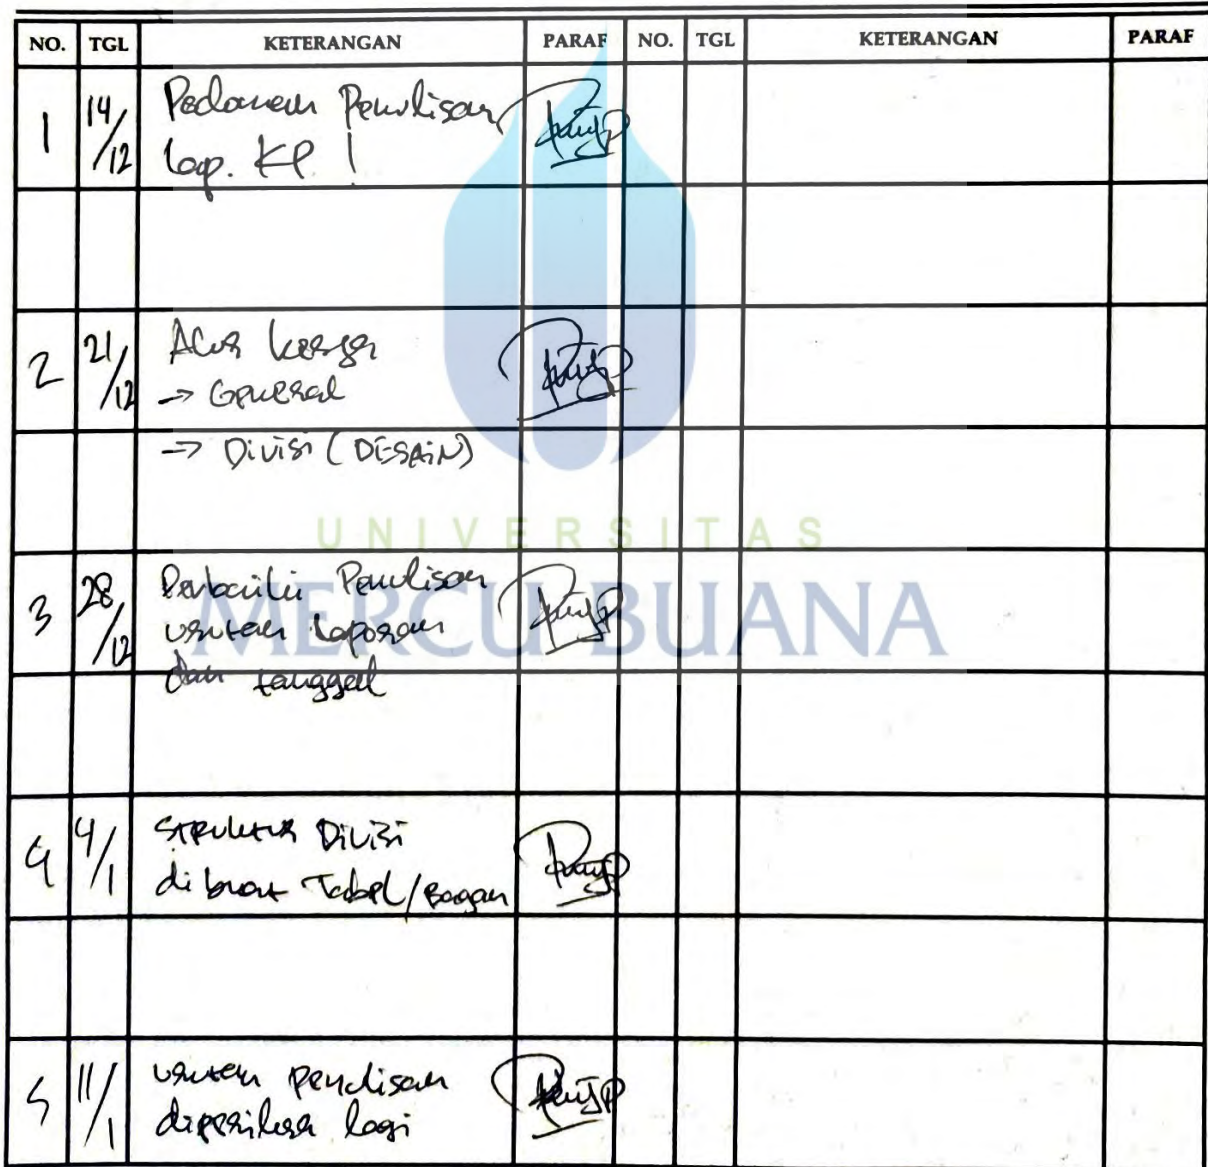 NO. TGL KETERANGAN PARAF NO. TGL KETERANGAN PARAF
1 14/12 Pedoman Penulisan
Lap. KP !
2 21/12 Alur kerja
-> General
-> Divisi (DESAiN)
UNIVERSITAS
MERCU BUANA
3 28/12 Perbaiki Penulisan
urutan laporan
dan tanggal
4 4/1 STRUKTUR Divisi
di buat Tabel/Bagan
5 11/1 urutan penulisan
diperiksa lagi